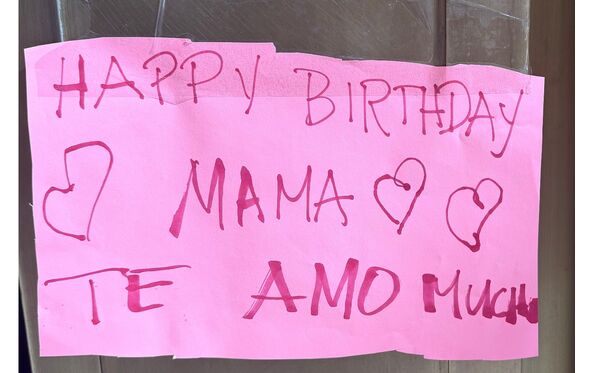 HAPPY BIRTHDAY
MAMA
TE AMO MUCHO